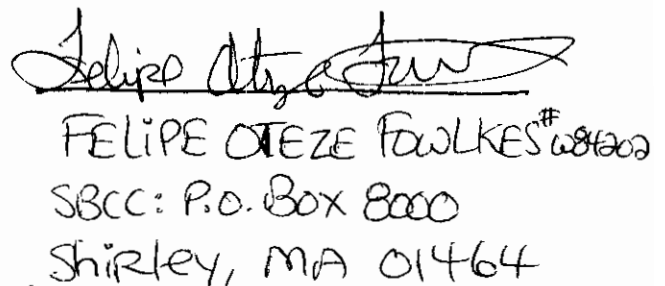 Felipe Oteze Fowlkes
FELIPE OTEZE FOWLKES #W84202
SBCC: P.O. BOX 8000
Shirley, MA 01464